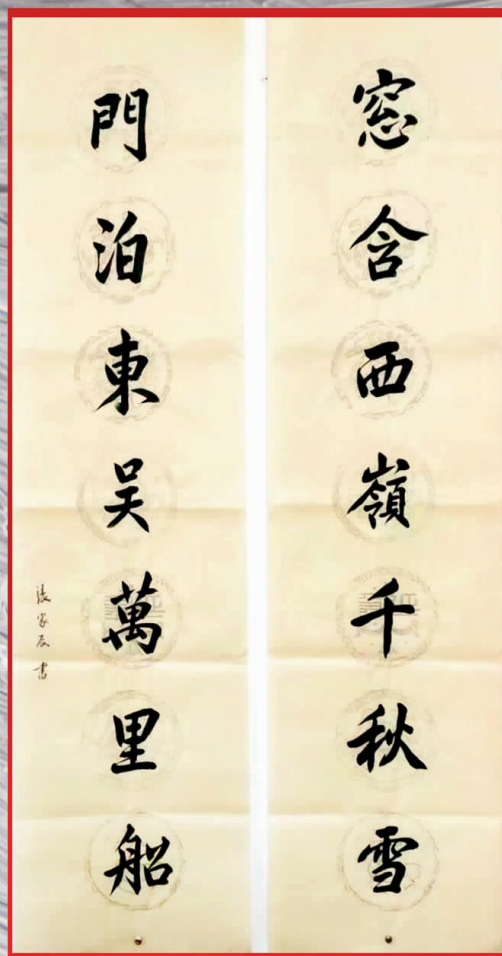 窓含西嶺千秋雪
門泊東吴萬里船
張家辰書